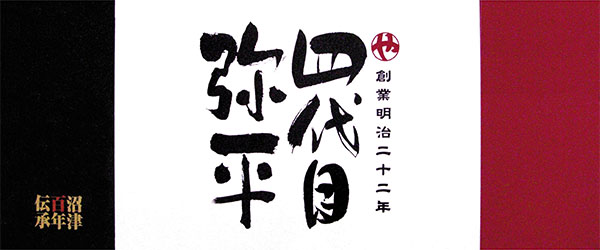 や
創業明治二十二年
四代目
弥平
沼津
百年
伝承